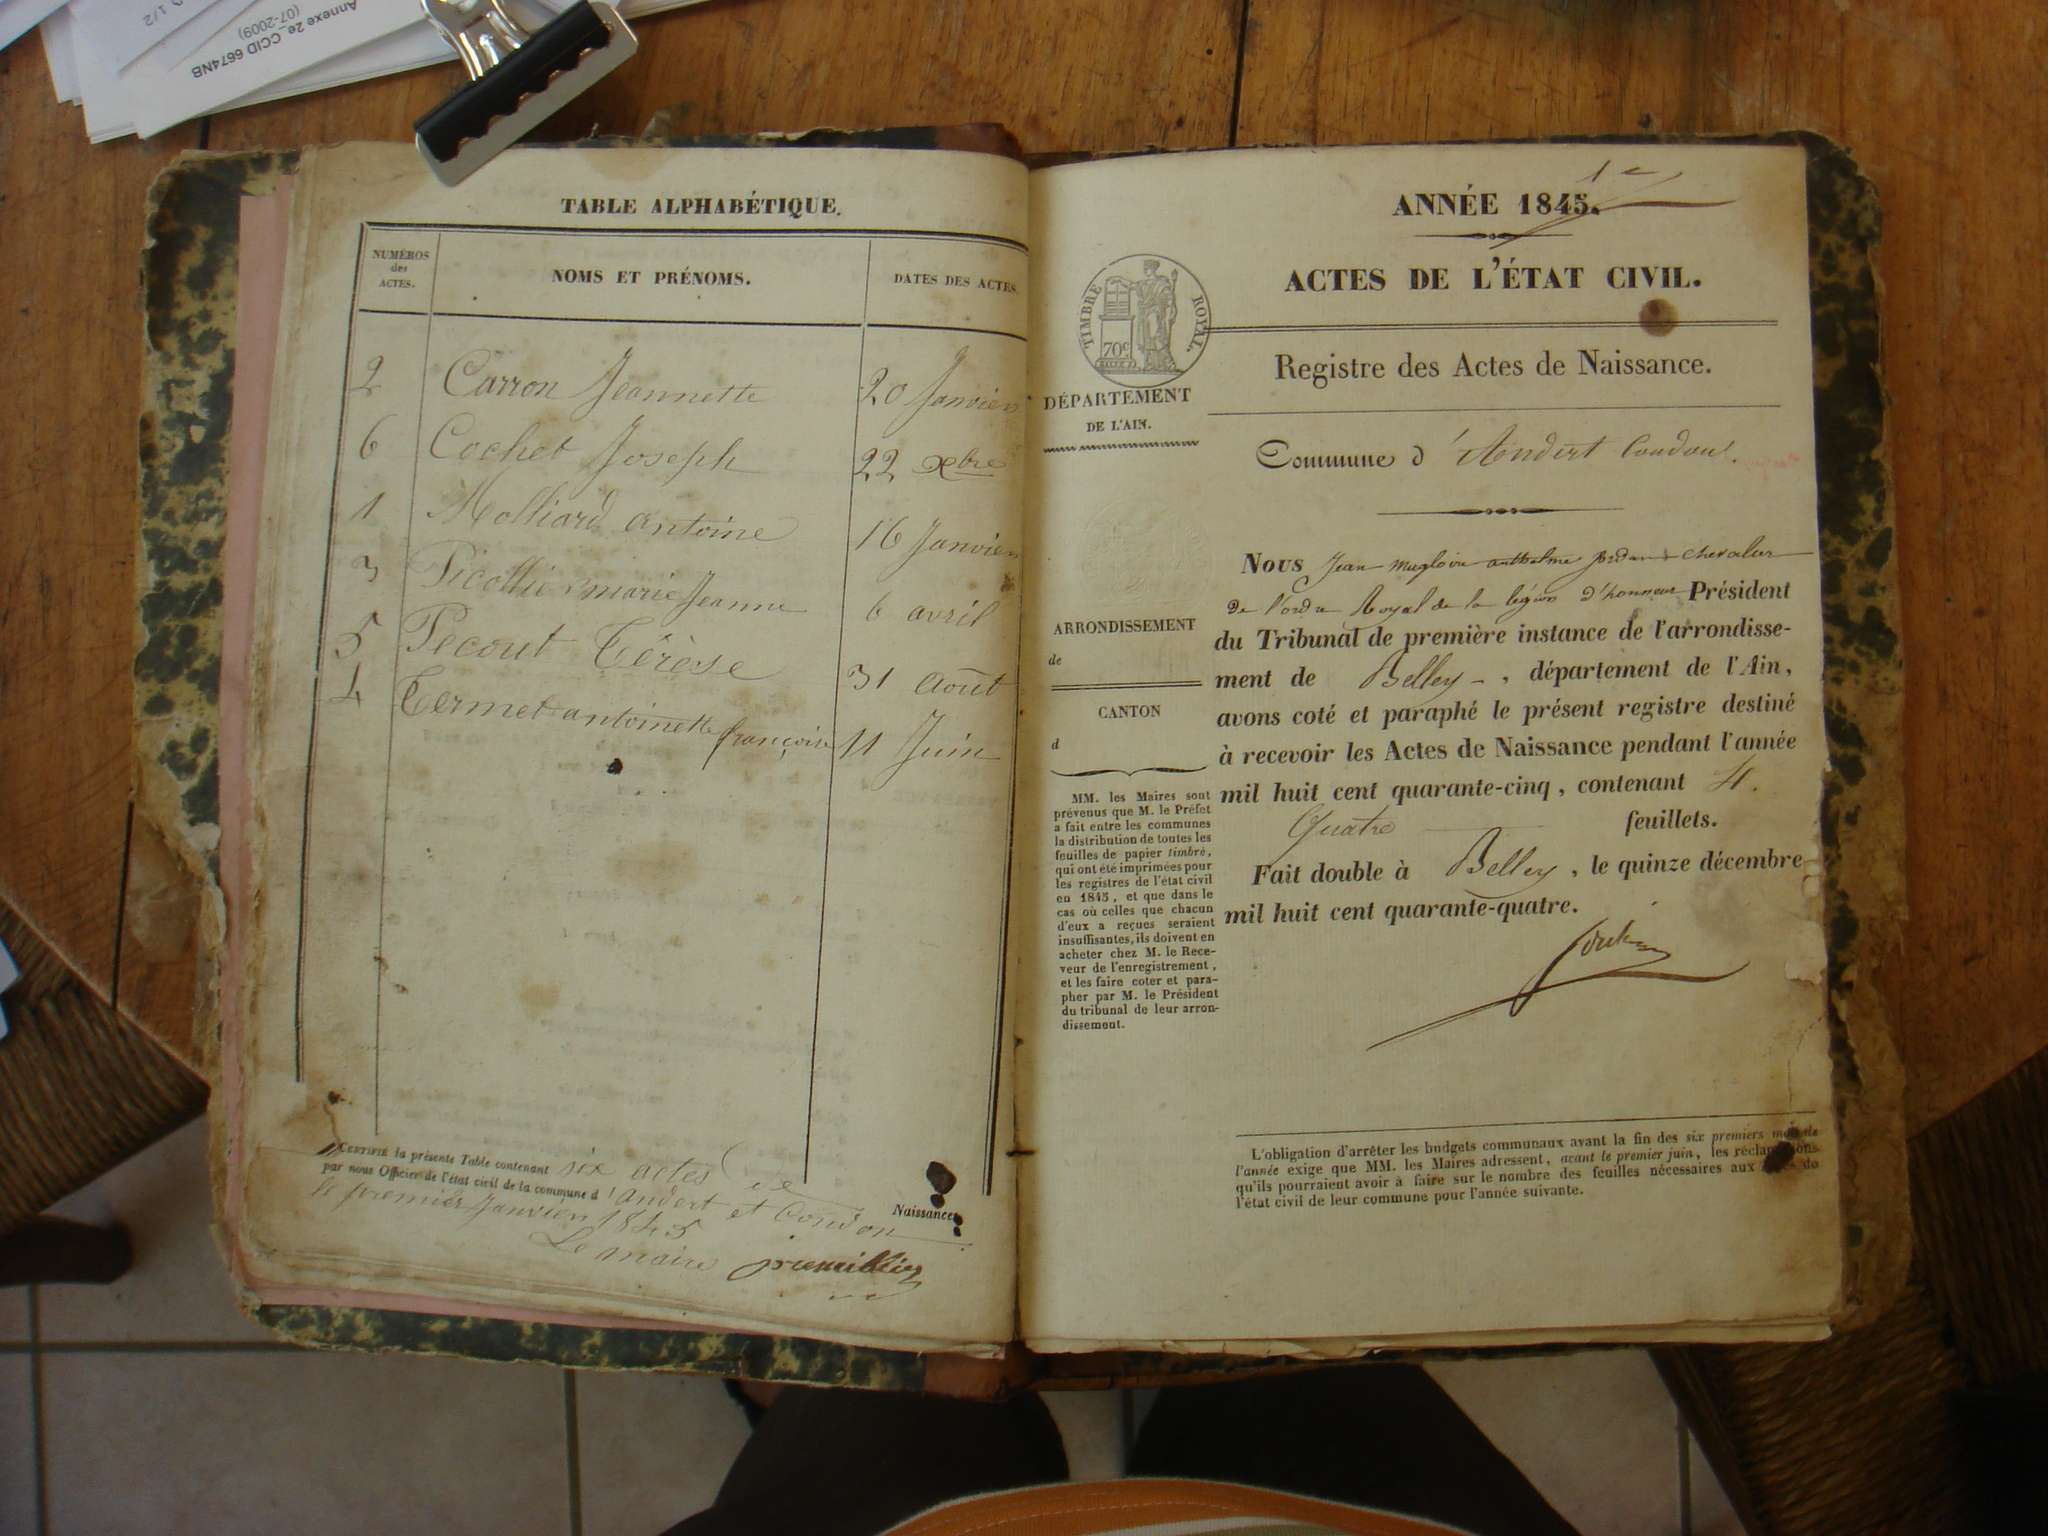 Annexe 2e_CCID 6674NB
(07-2009)
1/2
TABLE ALPHABÉTIQUE.
NUMÉROS
des
ACTES.
NOMS ET PRÉNOMS.
DATES DES ACTES.
2 Carron Jeannette 20 Janvier
6 Cochet Joseph 22 Xbre
1 Molliard antoine 16 Janvier
3 Picollic marie Jeanne 6 avril
5 Pecout Térèse 31 Août
4 Termet antoinette françoise 11 Juin
CERTIFIÉ la présente Table contenant six actes de
Naissance
par nous Officier de l'état civil de la commune d'Andert et Condon
le premier Janvier 1845
Le maire
1e
ANNÉE 1845.
ACTES DE L'ÉTAT CIVIL.
TIMBRE ROYAL.
70c
Registre des Actes de Naissance.
DÉPARTEMENT
DE L'AIN.
Commune d'Andert Condon.
ARRONDISSEMENT
de
CANTON
d
MM. les Maires sont
prévenus que M. le Préfet
a fait entre les communes
la distribution de toutes les
feuilles de papier timbré,
qui ont été imprimées pour
les registres de l'état civil
en 1845, et que dans le
cas où celles que chacun
d'eux a reçues seraient
insuffisantes, ils doivent en
acheter chez M. le Rece-
veur de l'enregistrement,
et les faire coter et para-
pher par M. le Président
du tribunal de leur arron-
dissement.
Nous Jean Magloire anthelme Jordan chevalier
De l'ordre Royal de la légion d'honneur Président
du Tribunal de première instance de l'arrondisse-
ment de Belley, département de l'Ain,
avons coté et paraphé le présent registre destiné
à recevoir les Actes de Naissance pendant l'année
mil huit cent quarante-cinq, contenant 4.
Quatre feuillets.
Fait double à Belley, le quinze décembre
mil huit cent quarante-quatre.
L'obligation d'arrêter les budgets communaux avant la fin des six premiers mois de
l'année exige que MM. les Maires adressent, avant le premier juin, les réclamations
qu'ils pourraient avoir à faire sur le nombre des feuilles nécessaires aux actes de
l'état civil de leur commune pour l'année suivante.